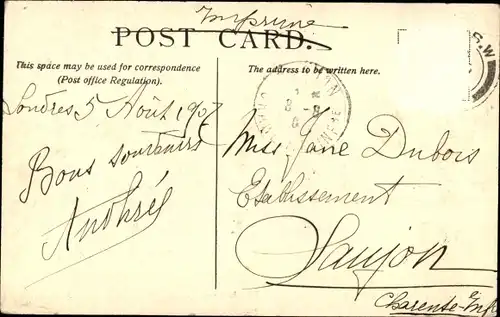 Imprimé
POST CARD.
This space may be used for correspondence
(Post office Regulation).
The address to be written here.
Londres 5 Août 1907
Bons souvenirs
Miss Jane Dubois
Etablissement
Saujon
Charente-Inf
S.W